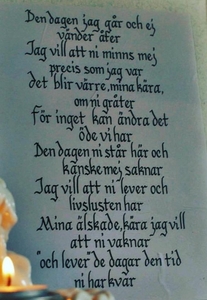 Den dagen jag går och ej
vänder åter
Jag vill att ni minns mej
precis som jag var
det blir värre, mina kära,
om ni gråter
För inget kan ändra det
öde vi har
Den dagen ni står här och
kanske mej saknar
Jag vill att ni lever och
livslusten har
Mina älskade, kära jag vill
att ni vaknar
"och lever" de dagar den tid
ni har kvar